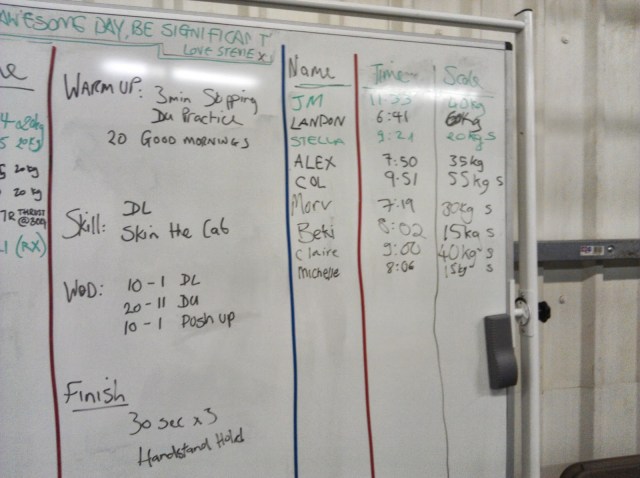 AWESOME DAY, BE SIGNIFICANT
LOVE STEVIE X
20kg
20kg
20kg
20 kg
THRUST
(RX)
WARM UP: 3min Skipping
DU Practice
20 GOOD MORNINGS
Skill: DL
Skin the Cat
WOD: 10-1 DL
20-11 DU
10-1 Push up
Finish
30 sec x 3
Handstand Hold
Name Time Scale
JM 11:33 40kg
LANDON 6:41 60kg
STELLA 9:21 20kg s
ALEX 7:50 35kg
COL 9:51 55kg s
Morv 7:19 30kg s
Beki 8:02 15kg s
Claire 9:00 40kg s
Michelle 8:06 15kg s